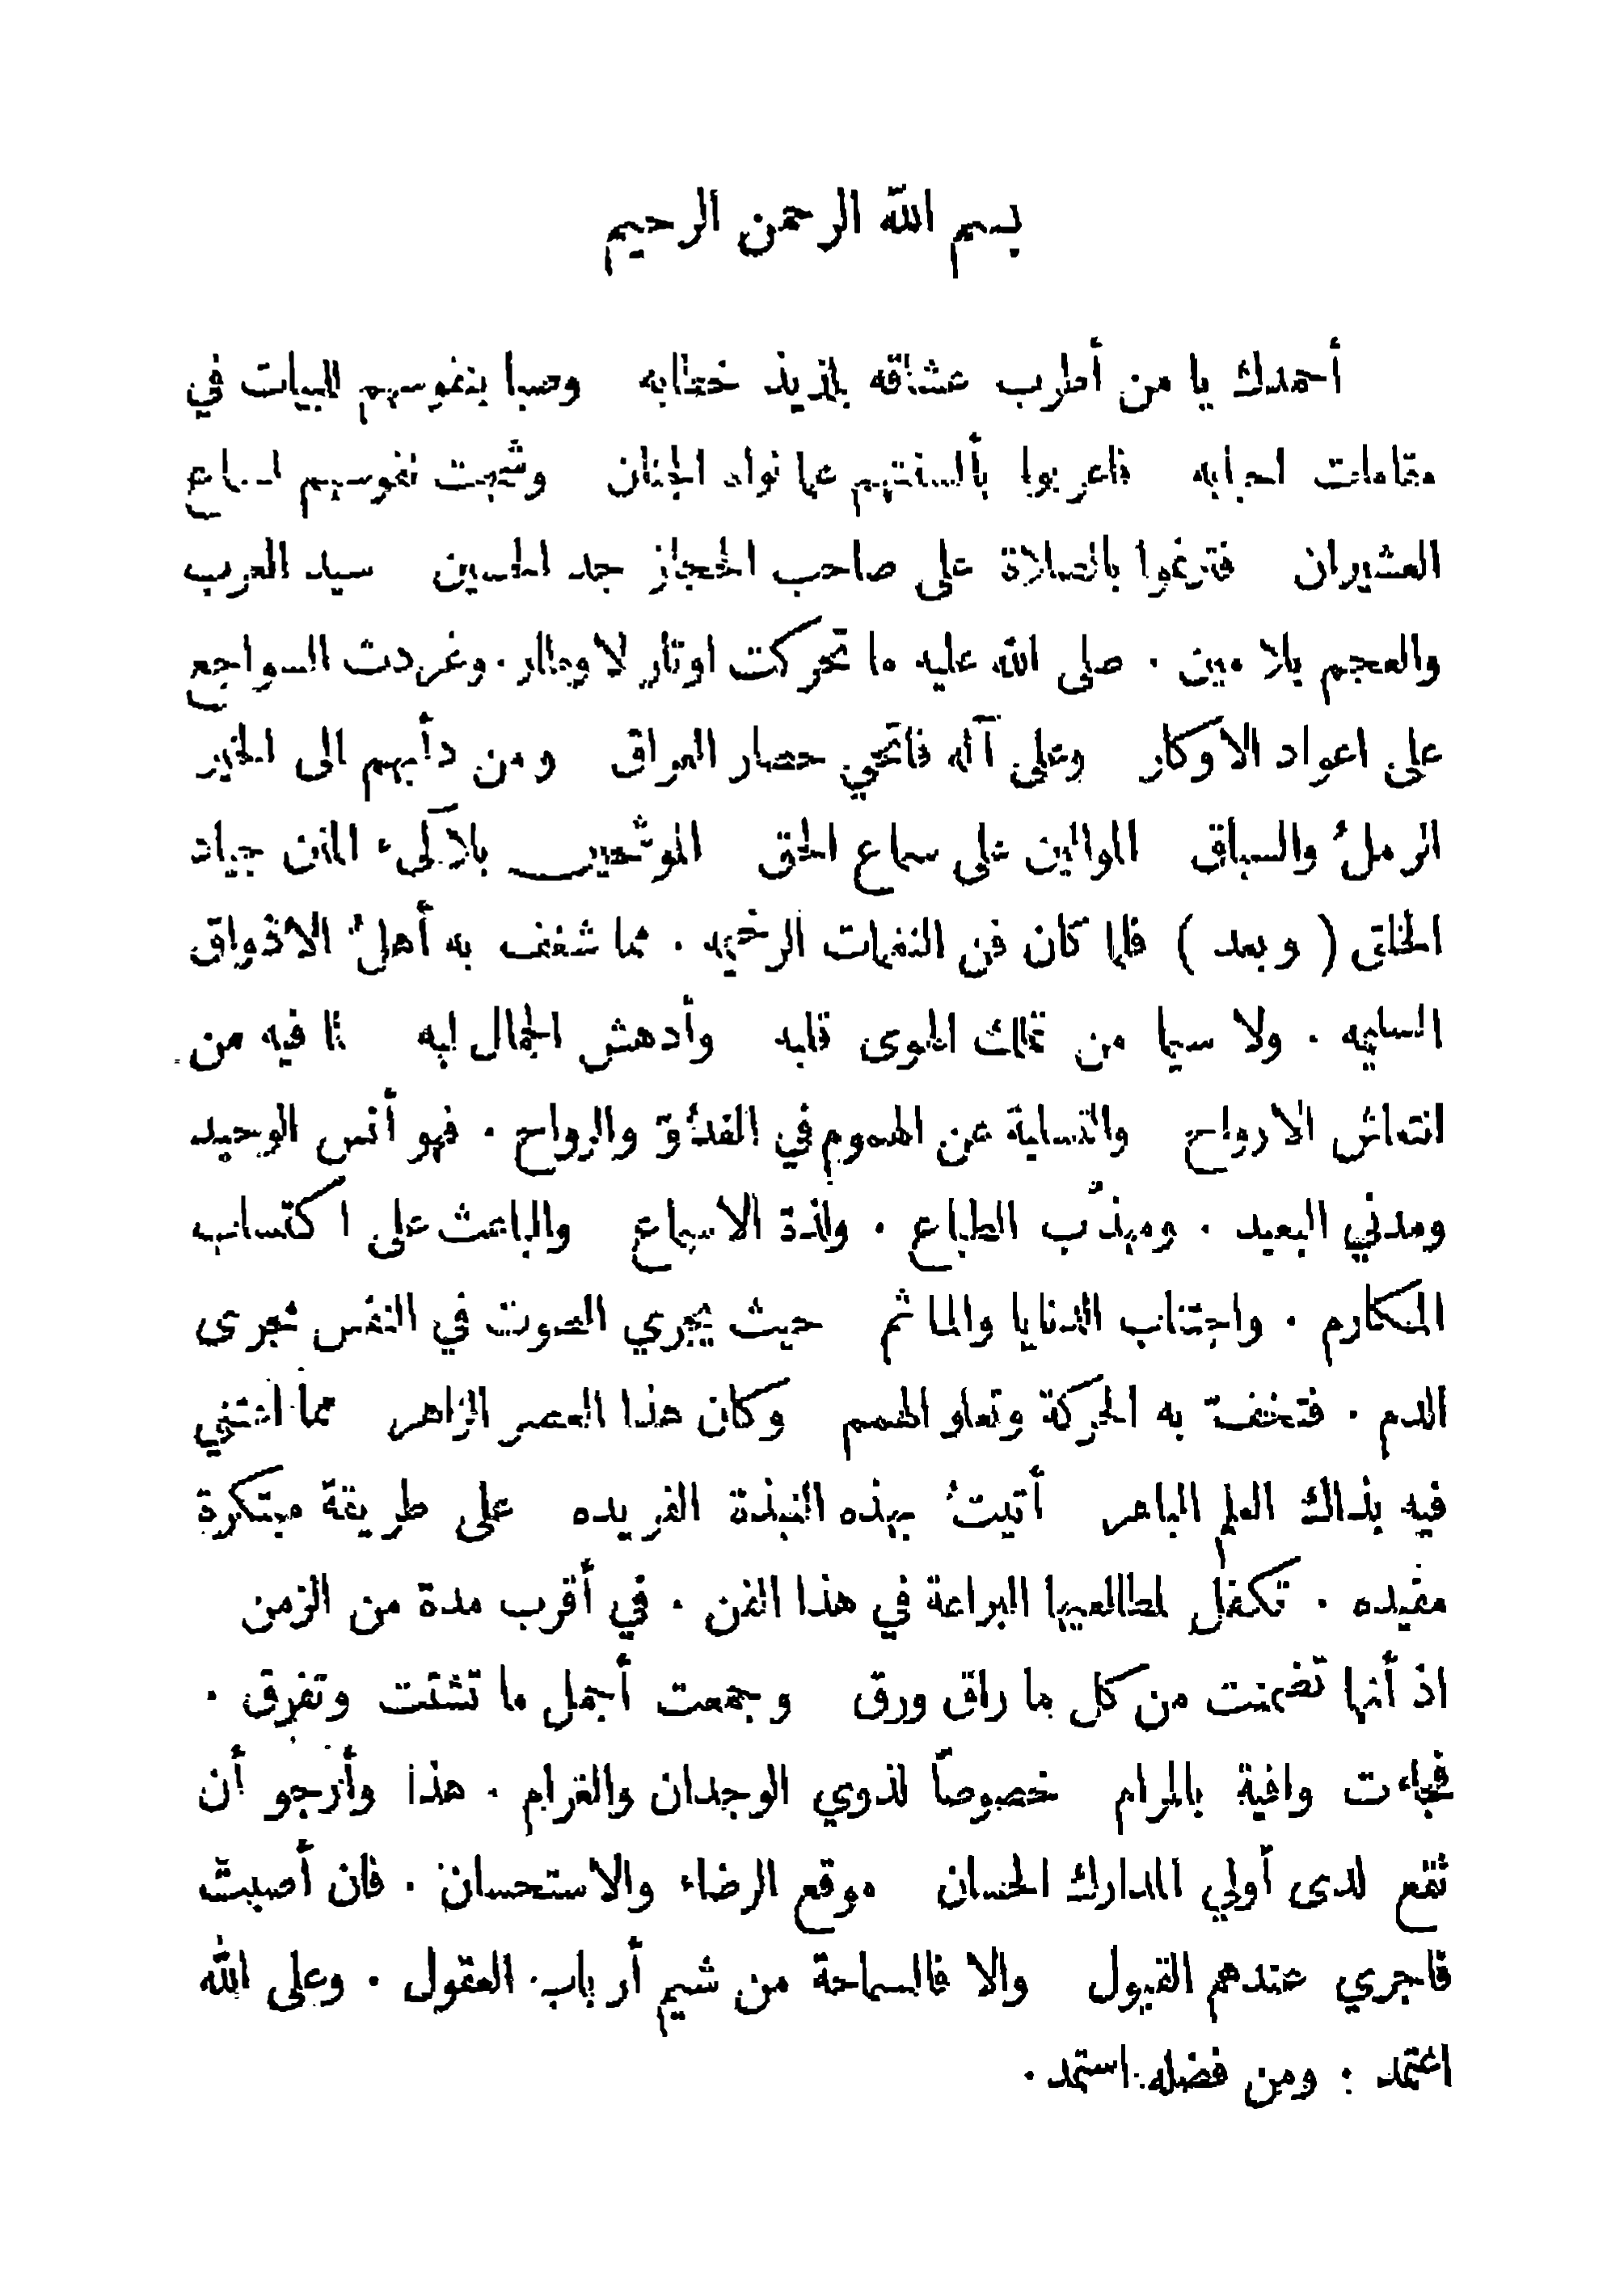 بسم الله الرحمن الرحيم
أحمدك يا من أطرب عشاقه بلذيذ خطابه وصبا بنفوسهم للبيات في
مقامات احبابه فاعربوا بألسنتهم عما نواه الجنان وشجت نفوسهم لسماع
العشيران فترنموا بالصلاة على صاحب الحجاز جد الحسين سيد العرب
والعجم بلا مين . صلى الله عليه ما تحركت اوتار لاوطار . وغردت السواجع
على اعواد الاوكار وعلى آله فاتحي حصار العراق ومن دأبهم الى الخير
الرملُ والسباق الموالين على سماع الحق الموشحين بلآلىء المنن جياد
الخلق ( وبعد ) فلما كان فن النغمات الرخيمه . مما شغف به أهلُ الاذواق
السليمه . ولا سيما من تملك الهوى قلبه وأدهش الجمال لبه لما فيه من
انتعاش الارواح والتسلية عن الهموم في الغدُوّ والرواح . فهو أنس الوحيد
ومدني البعيد . ومهذّب الطباع . ولذة الاسماع والباعث على اكتساب
المكارم . واجتناب الدنايا والمآثم حيث يجري الصوت في النفس مجرى
الدم . فتخفّ به الحركة وتعلو الهمم وكان هذا العصر الزاهر مما اعتني
فيه بذاك العلم الباهر أتيتُ بهذه النبذة الفريده على طريقة مبتكرة
مفيده . تكفل لمطالعيها البراعة في هذا الفن . في أقرب مدة من الزمن
اذ أنها تضمنت من كل ما راق ورق وجمعت أجمل ما تشتت وتفرق .
فجاءت وافية بالمرام خصوصاً لذوي الوجدان والغرام . هذا وأرجو أن
تقع لدى أولي المدارك الحسان موقع الرضاء والاستحسان . فان أصبت
فاجري عندهم القبول والا فالسماحة من شيم أرباب العقول . وعلى الله
اعتمد . ومن فضله استمد .